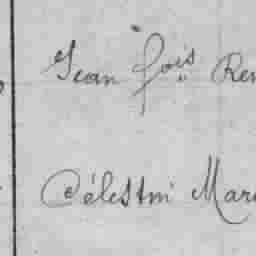 Jean fois Ren
Célestin Mar